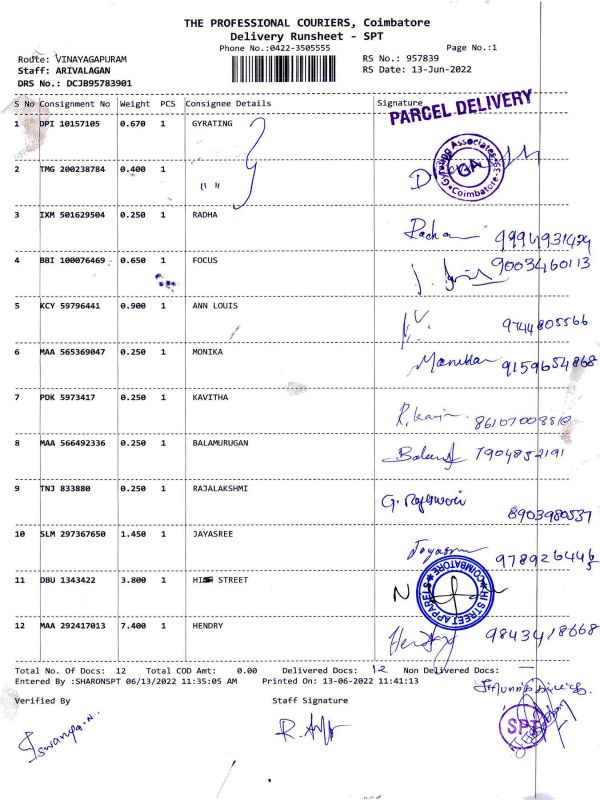 THE PROFESSIONAL COURIERS, Coimbatore
Delivery Runsheet - SPT
Phone No.:0422-3505555 Page No.:1
Route: VINAYAGAPURAM RS No.: 957839
Staff: ARIVALAGAN RS Date: 13-Jun-2022
DRS No.: DCJB95783901
S No Consignment No Weight PCS Consignee Details Signature
PARCEL DELIVERY
1 DPI 10157105 0.670 1 GYRATING
Gyrating Associates GA Coimbatore-35
2 TMG 200238784 0.400 1 " "
3 IXM 501629504 0.250 1 RADHA Radha
4 BBI 100076469 0.650 1 FOCUS 9003460113
5 KCY 59796441 0.900 1 ANN LOUIS 9744805566
6 MAA 565369047 0.250 1 MONIKA 9159654868
7 PDK 5973417 0.250 1 KAVITHA
8 MAA 566492336 0.250 1 BALAMURUGAN 7904852191
9 TNJ 833880 0.250 1 RAJALAKSHMI 8903980537
10 SLM 297367650 1.450 1 JAYASREE
11 DBU 1343422 3.800 1 STREET
HI STREET APPAREL COIMBATORE
12 MAA 292417013 7.400 1 HENDRY 9843418668
Total No. Of Docs: 12 Total COD Amt: 0.00 Delivered Docs: 12 Non Delivered Docs: —
Entered By :SHARONSPT 06/13/2022 11:35:05 AM Printed On: 13-06-2022 11:41:13
Verified By Staff Signature
SPT